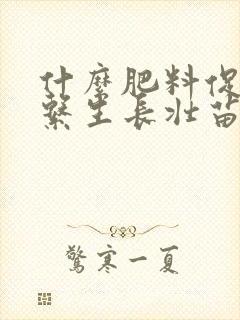 什麼肥料促
繫生長壯苗
驚寒一夏